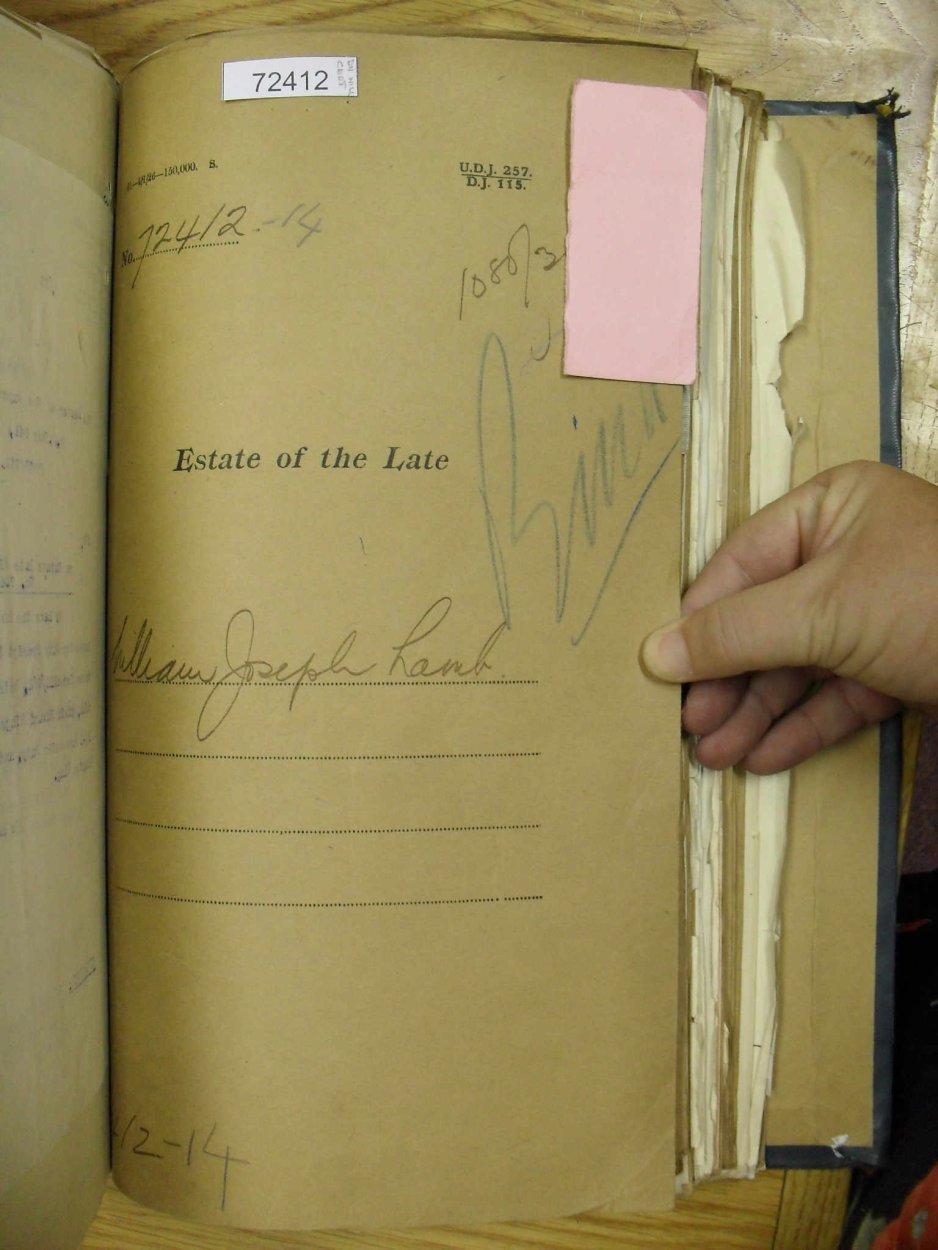 72412
150,000. S.
U.D.J. 257.
D.J. 115.
No. 72412-14
1080/3
Estate of the Late
William Joseph Lamb.
12-14